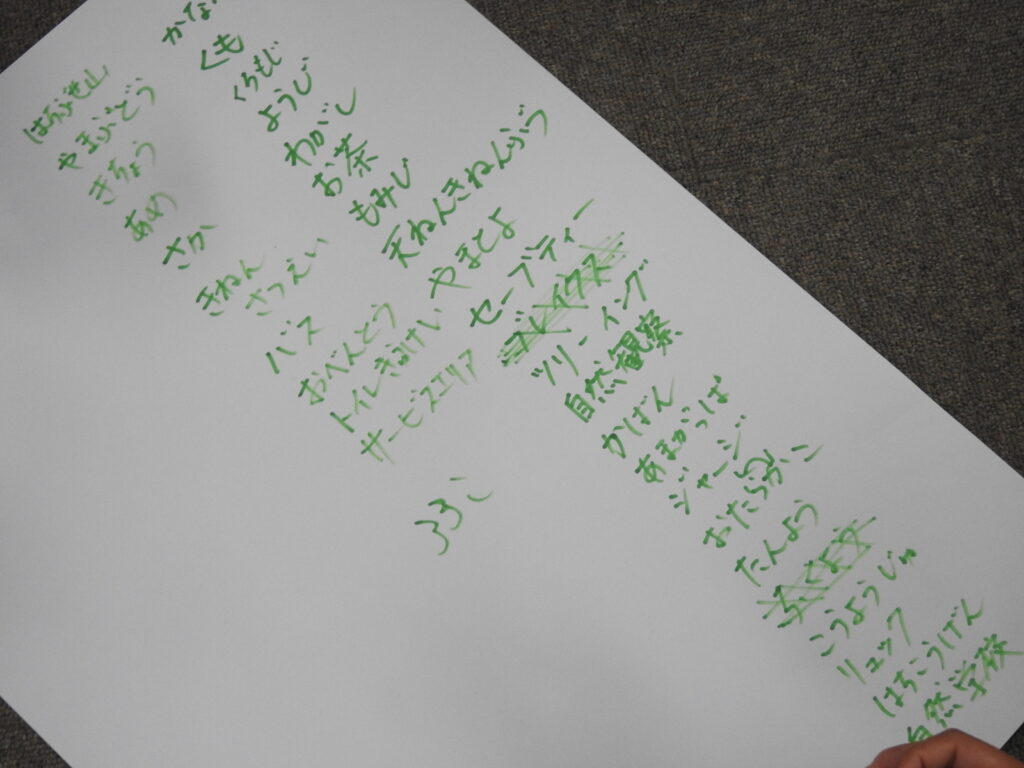 はちぶせ山
やまぶどう
きちょう
あめ
さか
きねん
さつえい
バス
おべんとう
トイレきゅうけい
サービスエリア
くも
くろもじ
ようじ
わがし
お茶
もみじ
天ねんきねんぶつ
セーブティー
ブレイクス
ツリーイング
自然観察
かばん
あまがっぱ
ジャージ
たんよう
こうようじゅ
リュック
はちこうげん
自然学校